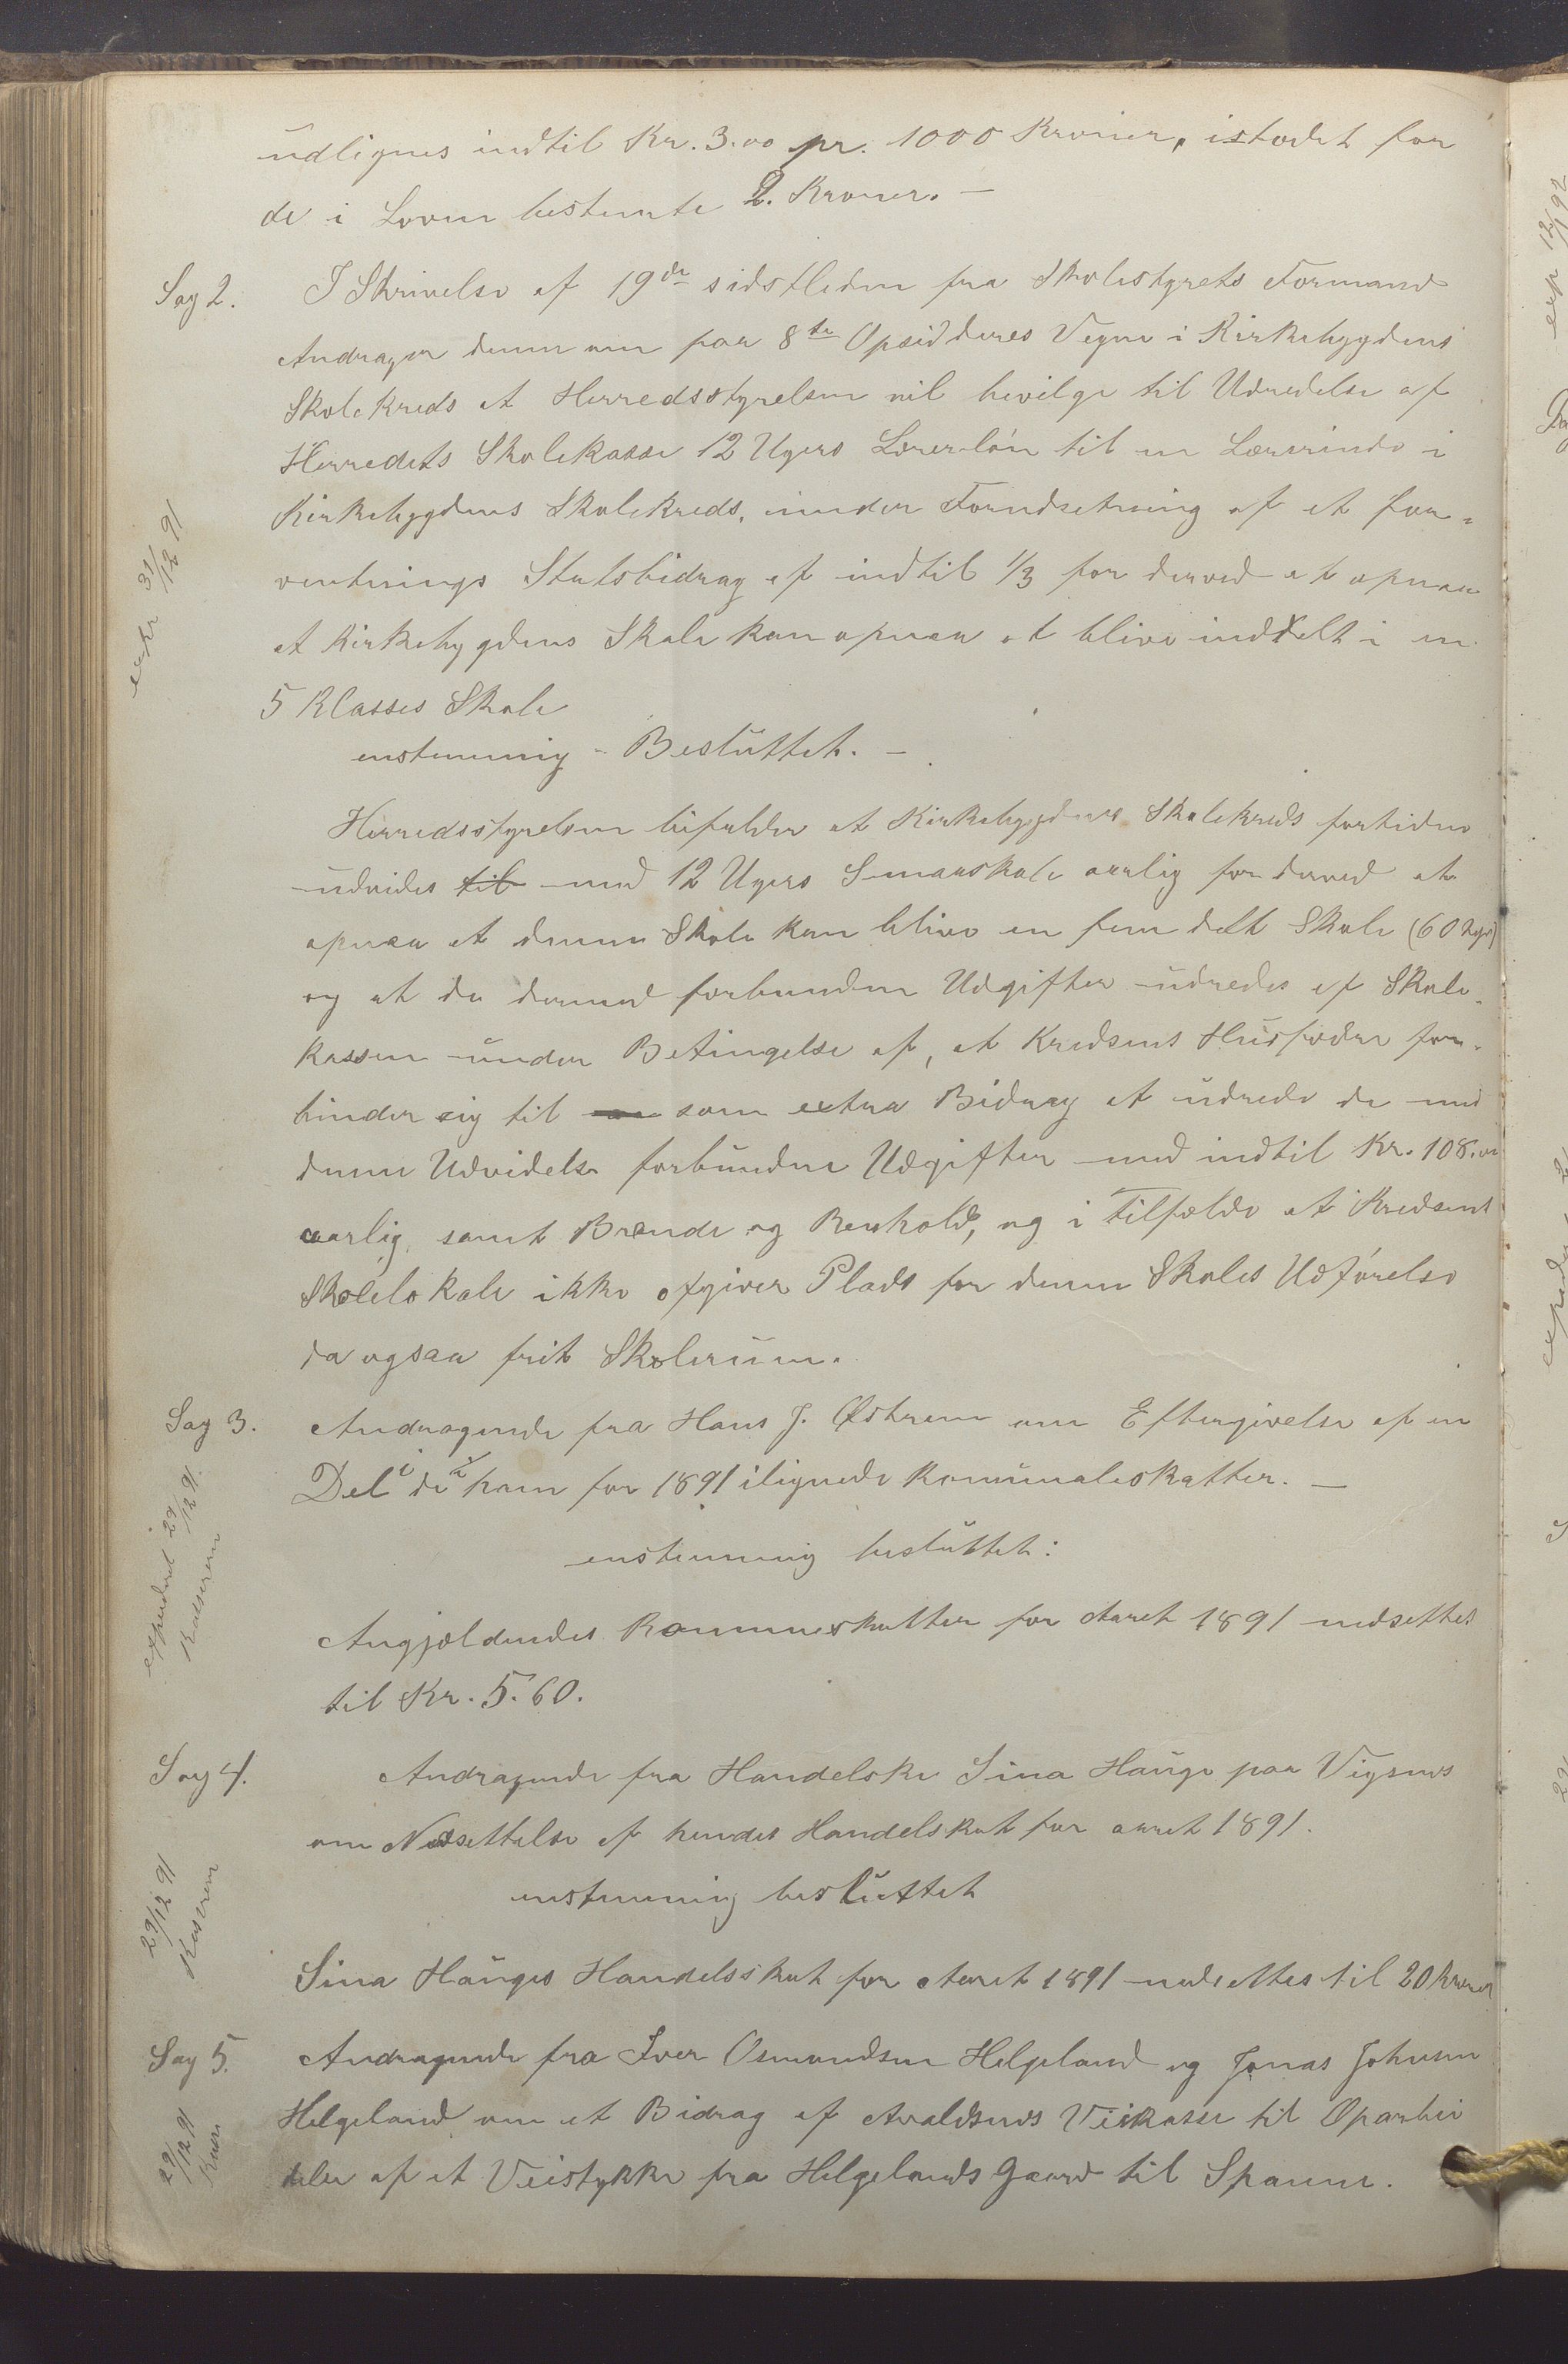 udlignes indtil Kr. 3.00 pr. 1000 Kroner, istædet for
de i Loven bestemte 2. Kroner. –
Sag 2. I Skrivelse af 19de sidstleden fra Skolestyrets Formand
Andrager denne om paa 8te Opsidderes Vegne i Kirkebygdens
Skolekreds at Herredsstyrelsen vil bevilge til Udredelse af
Herredets Skolekasse 12 Ugers Lærerløn til en Lærerinde i
Kirkebygdens Skolekreds, under Forudsetning af et for-
ventnings Statsbidrag af indtil 1/3 for derved at opnaa
at Kirkebygdens Skole kan opnaa at blive inddelt i en
5 Klasses Skole
expr 31/12 91
enstemmig Besluttet. –
Herredsstyrelsen bifalder at Kirkebygdens Skolekreds fortiden
udvides til med 12 Ugers Smaaskole aarlig for derved at
opnaa at denne Skole kan blive en fem delt Skole (60 Uger)
og at de dermed forbunden Udgifter udredes af Skole-
kassen under Betingelse af, at Kredsens Husfædre for-
binder sig til som extra Bidrag at udrede de med
denne Udvidelse forbundne Udgifter med indtil Kr. 108.00
aarlig, samt Brænde og Renhold, og i Tilfælde at Kredsens
Skolelokale ikke afgiver Plads for denne Skoles Udførelse
da ogsaa frit Skolerum.
Sag 3. Andragende fra Hans J. Østrem om Eftergivelse af en
Del i de ham for 1891 ilignede Kommunaleskatter. –
expederet 29/12 91
Kasseren
enstemmig besluttet:
Angjældendes Kommuneskatter for Aaret 1891 nedsettes
til Kr. 5.60.
Sag 4. Andragende fra Handelske Sina Hauge paa Vigsnes
om Nedsettelse af hendes Handelskat for aaret 1891.
29/12 91
Kasseren
enstemmig besluttet
Sina Hauges Handelsskat for Aaret 1891 nedsettes til 20 Kroner
Sag 5. Andragende fra Iver Osmundsen Helgeland og Jonas Johnsen
Helgeland om et Bidrag af Avaldsnes Veikasse til Oparbei
29/12 91
delse af et Veistykke fra Helgelands Gaard til Spanne.